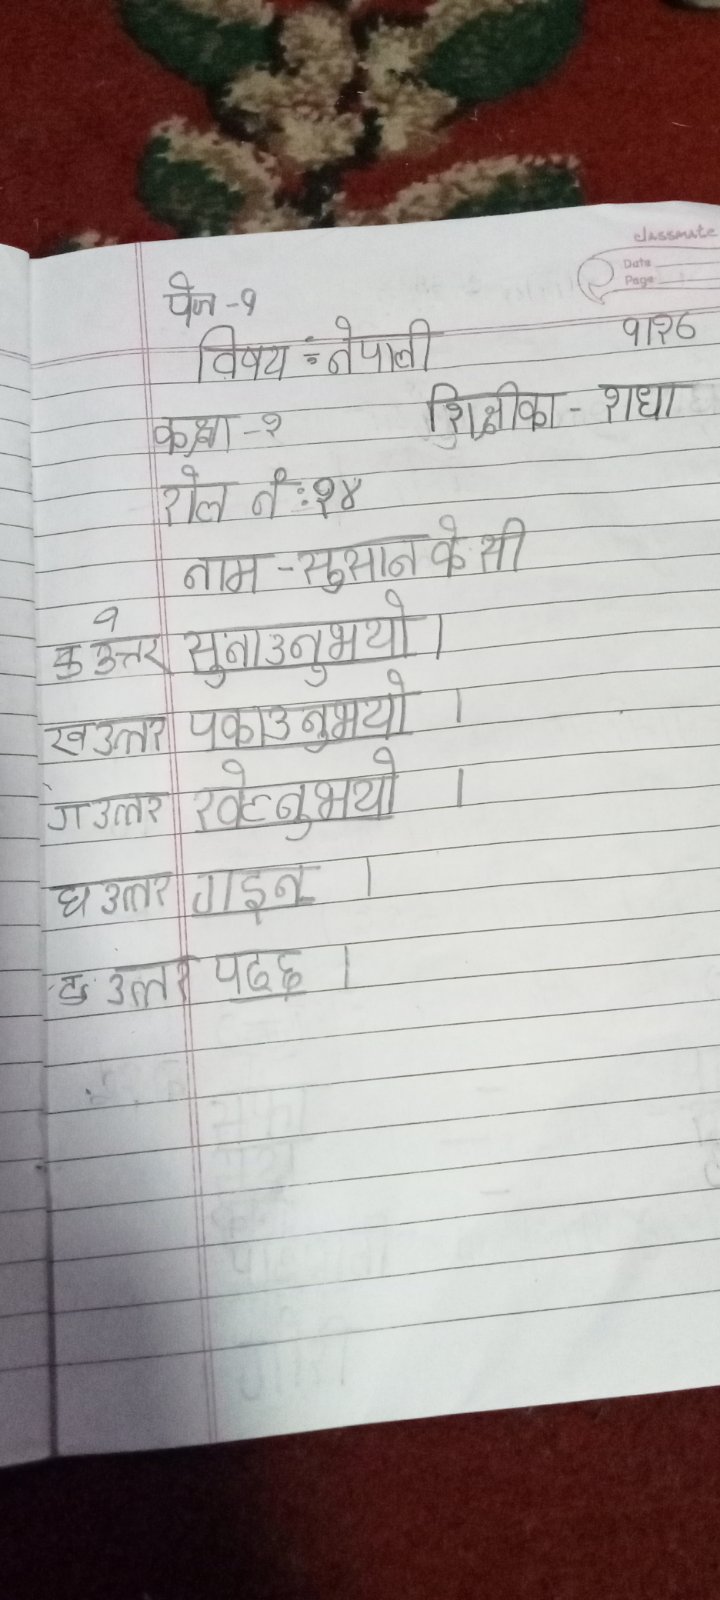 classmate
Date
Page
पेज -१
विषय : नेपाली
१।२८
कक्षा -२
शिक्षीका - राधा
रोल नं : १४
नाम - सुसान के सी
१
क उत्तर सुनाउनुभयो ।
ख उत्तर पकाउनुभयो ।
ग उत्तर खेल्नुभयो ।
घ उत्तर गाइन् ।
ङ उत्तर पढ्छ ।